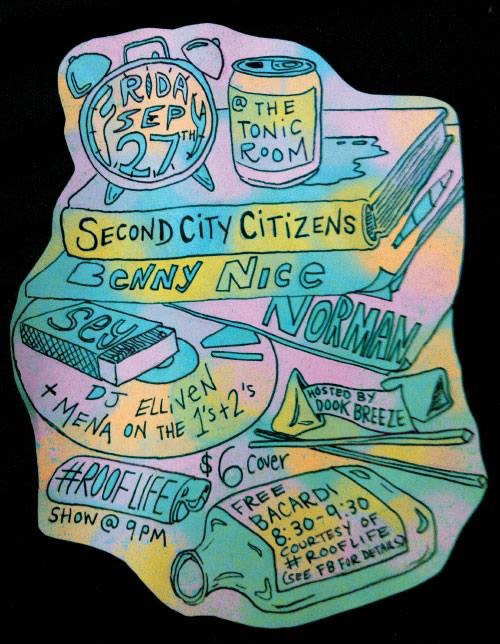 FRIDAY
SEP
27TH
@ THE
TONIC
ROOM
SECOND CITY CITIZENS
BENNY NICE
NORMAN
sey
DJ ELLIVEN
+ MENA ON THE 1's + 2's
HOSTED BY
DOOK BREEZE
$6 COVER
#ROOFLIFE
SHOW @ 9PM
FREE
BACARDI
8:30-9:30
COURTESY OF
#ROOFLIFE
(SEE FB FOR DETAILS)